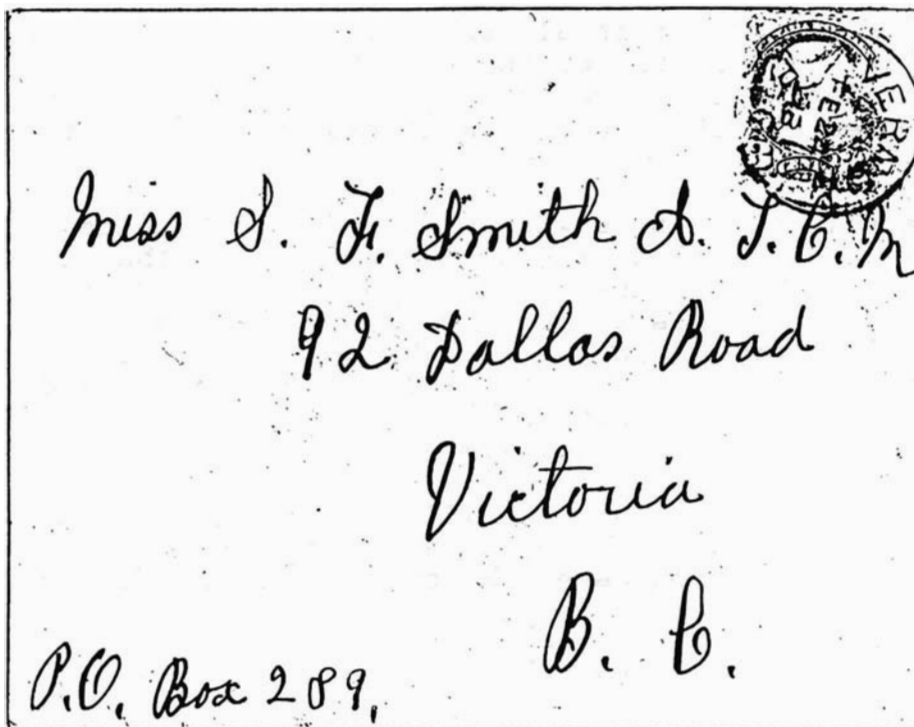 Miss S. F. Smith A. T. C. M
92 Dallas Road
Victoria
B. C.
P.O. Box 289,